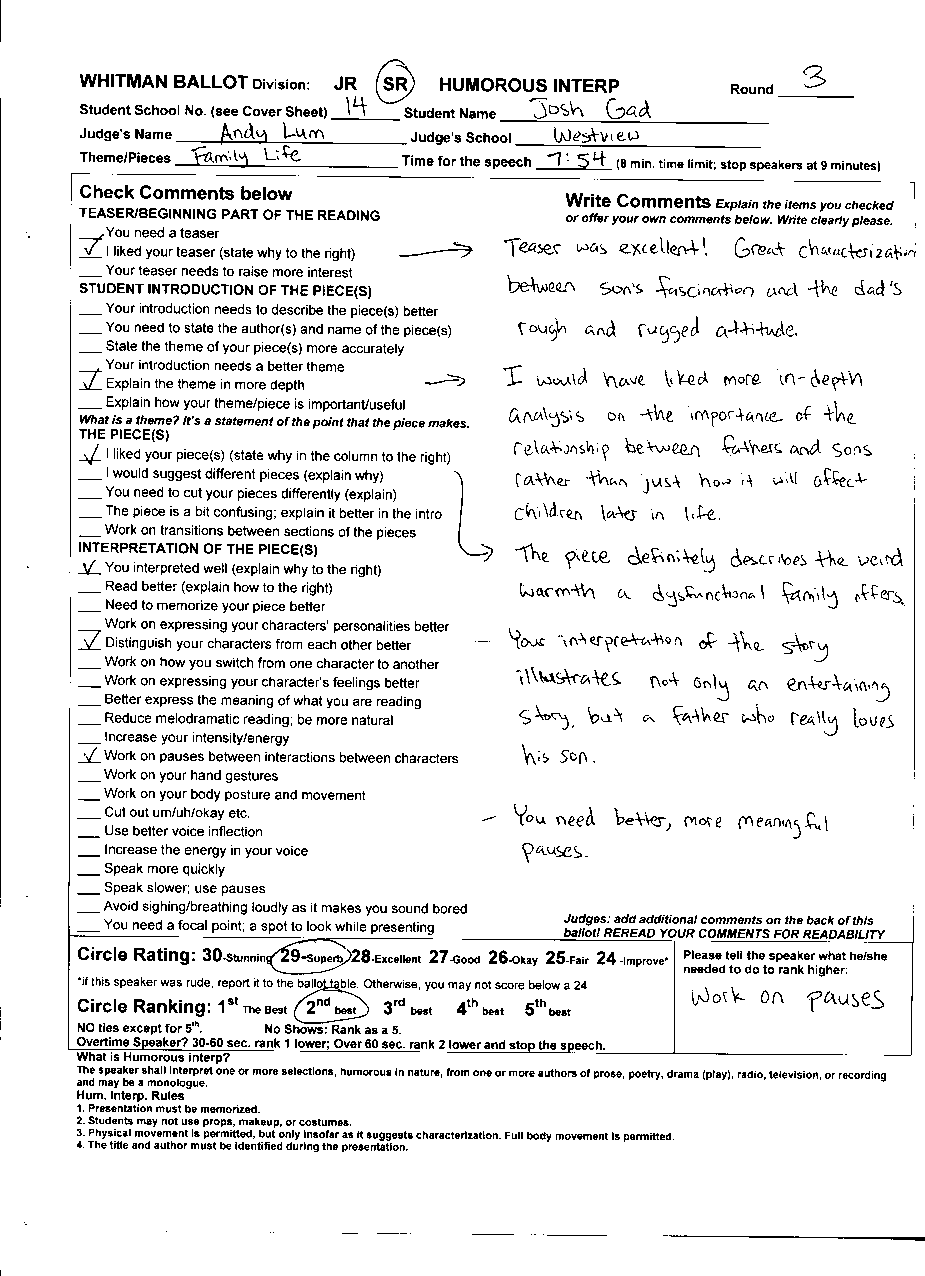 WHITMAN BALLOT Division: JR SR HUMOROUS INTERP Round 3
Student School No. (see Cover Sheet) 14 Student Name Josh Gad
Judge's Name Andy Lum Judge's School Westview
Theme/Pieces Family Life Time for the speech 7:54 (8 min. time limit; stop speakers at 9 minutes)
Check Comments below
TEASER/BEGINNING PART OF THE READING
___You need a teaser
✓ I liked your teaser (state why to the right)
___ Your teaser needs to raise more interest
STUDENT INTRODUCTION OF THE PIECE(S)
___ Your introduction needs to describe the piece(s) better
___ You need to state the author(s) and name of the piece(s)
___ State the theme of your piece(s) more accurately
___ Your introduction needs a better theme
✓ Explain the theme in more depth
___ Explain how your theme/piece is important/useful
What is a theme? It's a statement of the point that the piece makes.
THE PIECE(S)
✓ I liked your piece(s) (state why in the column to the right)
___ I would suggest different pieces (explain why)
___ You need to cut your pieces differently (explain)
___ The piece is a bit confusing; explain it better in the intro
___ Work on transitions between sections of the pieces
INTERPRETATION OF THE PIECE(S)
✓ You interpreted well (explain why to the right)
___ Read better (explain how to the right)
___ Need to memorize your piece better
___ Work on expressing your characters' personalities better
✓ Distinguish your characters from each other better
___ Work on how you switch from one character to another
___ Work on expressing your character's feelings better
___ Better express the meaning of what you are reading
___ Reduce melodramatic reading; be more natural
___ Increase your intensity/energy
✓ Work on pauses between interactions between characters
___ Work on your hand gestures
___ Work on your body posture and movement
___ Cut out um/uh/okay etc.
___ Use better voice inflection
___ Increase the energy in your voice
___ Speak more quickly
___ Speak slower; use pauses
___ Avoid sighing/breathing loudly as it makes you sound bored
___ You need a focal point; a spot to look while presenting
Write Comments Explain the items you checked
or offer your own comments below. Write clearly please.
Teaser was excellent! Great characterization
between son's fascination and the dad's
rough and rugged attitude.
I would have liked more in-depth
analysis on the importance of the
relationship between fathers and sons
rather than just how it will affect
children later in life.
The piece definitely describes the weird
warmth a dysfunctional family offers.
- Your interpretation of the story
illustrates not only an entertaining
story, but a father who really loves
his son.
- You need better, more meaningful
pauses.
Judges: add additional comments on the back of this
ballot! REREAD YOUR COMMENTS FOR READABILITY
Circle Rating: 30-Stunning 29-Superb 28-Excellent 27-Good 26-Okay 25-Fair 24-Improve*
*if this speaker was rude, report it to the ballot table. Otherwise, you may not score below a 24
Circle Ranking: 1st The Best 2nd best 3rd best 4th best 5th best
NO ties except for 5th. No Shows: Rank as a 5.
Overtime Speaker? 30-60 sec. rank 1 lower; Over 60 sec. rank 2 lower and stop the speech.
Please tell the speaker what he/she
needed to do to rank higher:
Work on pauses
What is Humorous interp?
The speaker shall interpret one or more selections, humorous in nature, from one or more authors of prose, poetry, drama (play), radio, television, or recording
and may be a monologue.
Hum. Interp. Rules
1. Presentation must be memorized.
2. Students may not use props, makeup, or costumes.
3. Physical movement is permitted, but only insofar as it suggests characterization. Full body movement is permitted.
4. The title and author must be identified during the presentation.